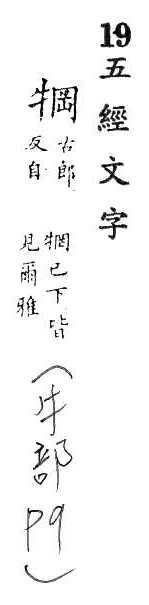 19五經文字
㓻古郎反自
犅已下皆見爾雅
(牛部 P9)